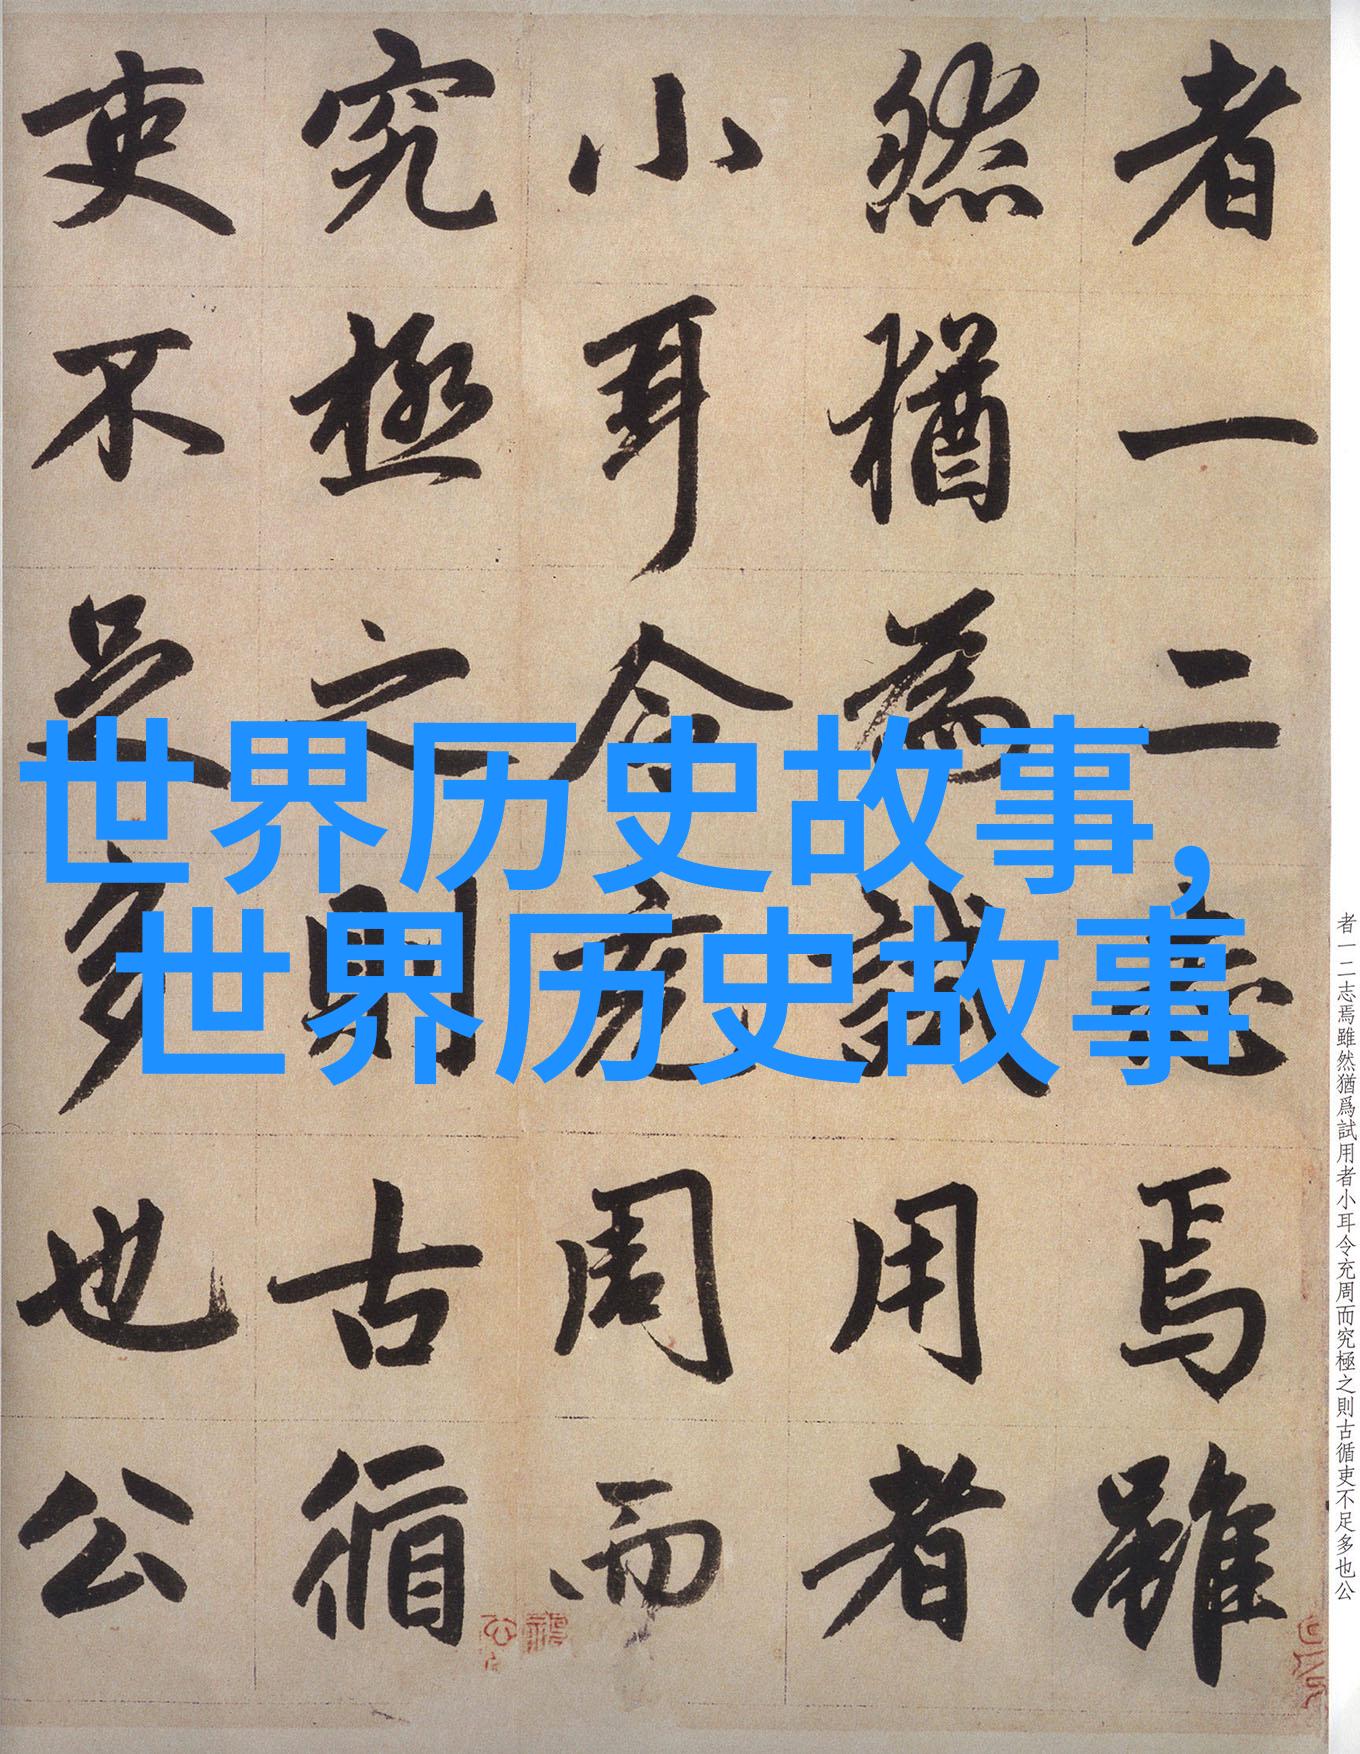 者一二志焉雖
然猶為試用者
小耳令充周而
究極之則古循
吏不足多也公
世界历史故事,
世界历史故事
者一二志焉雖然猶爲試用者小耳令充周而究極之則古循吏不足多也公